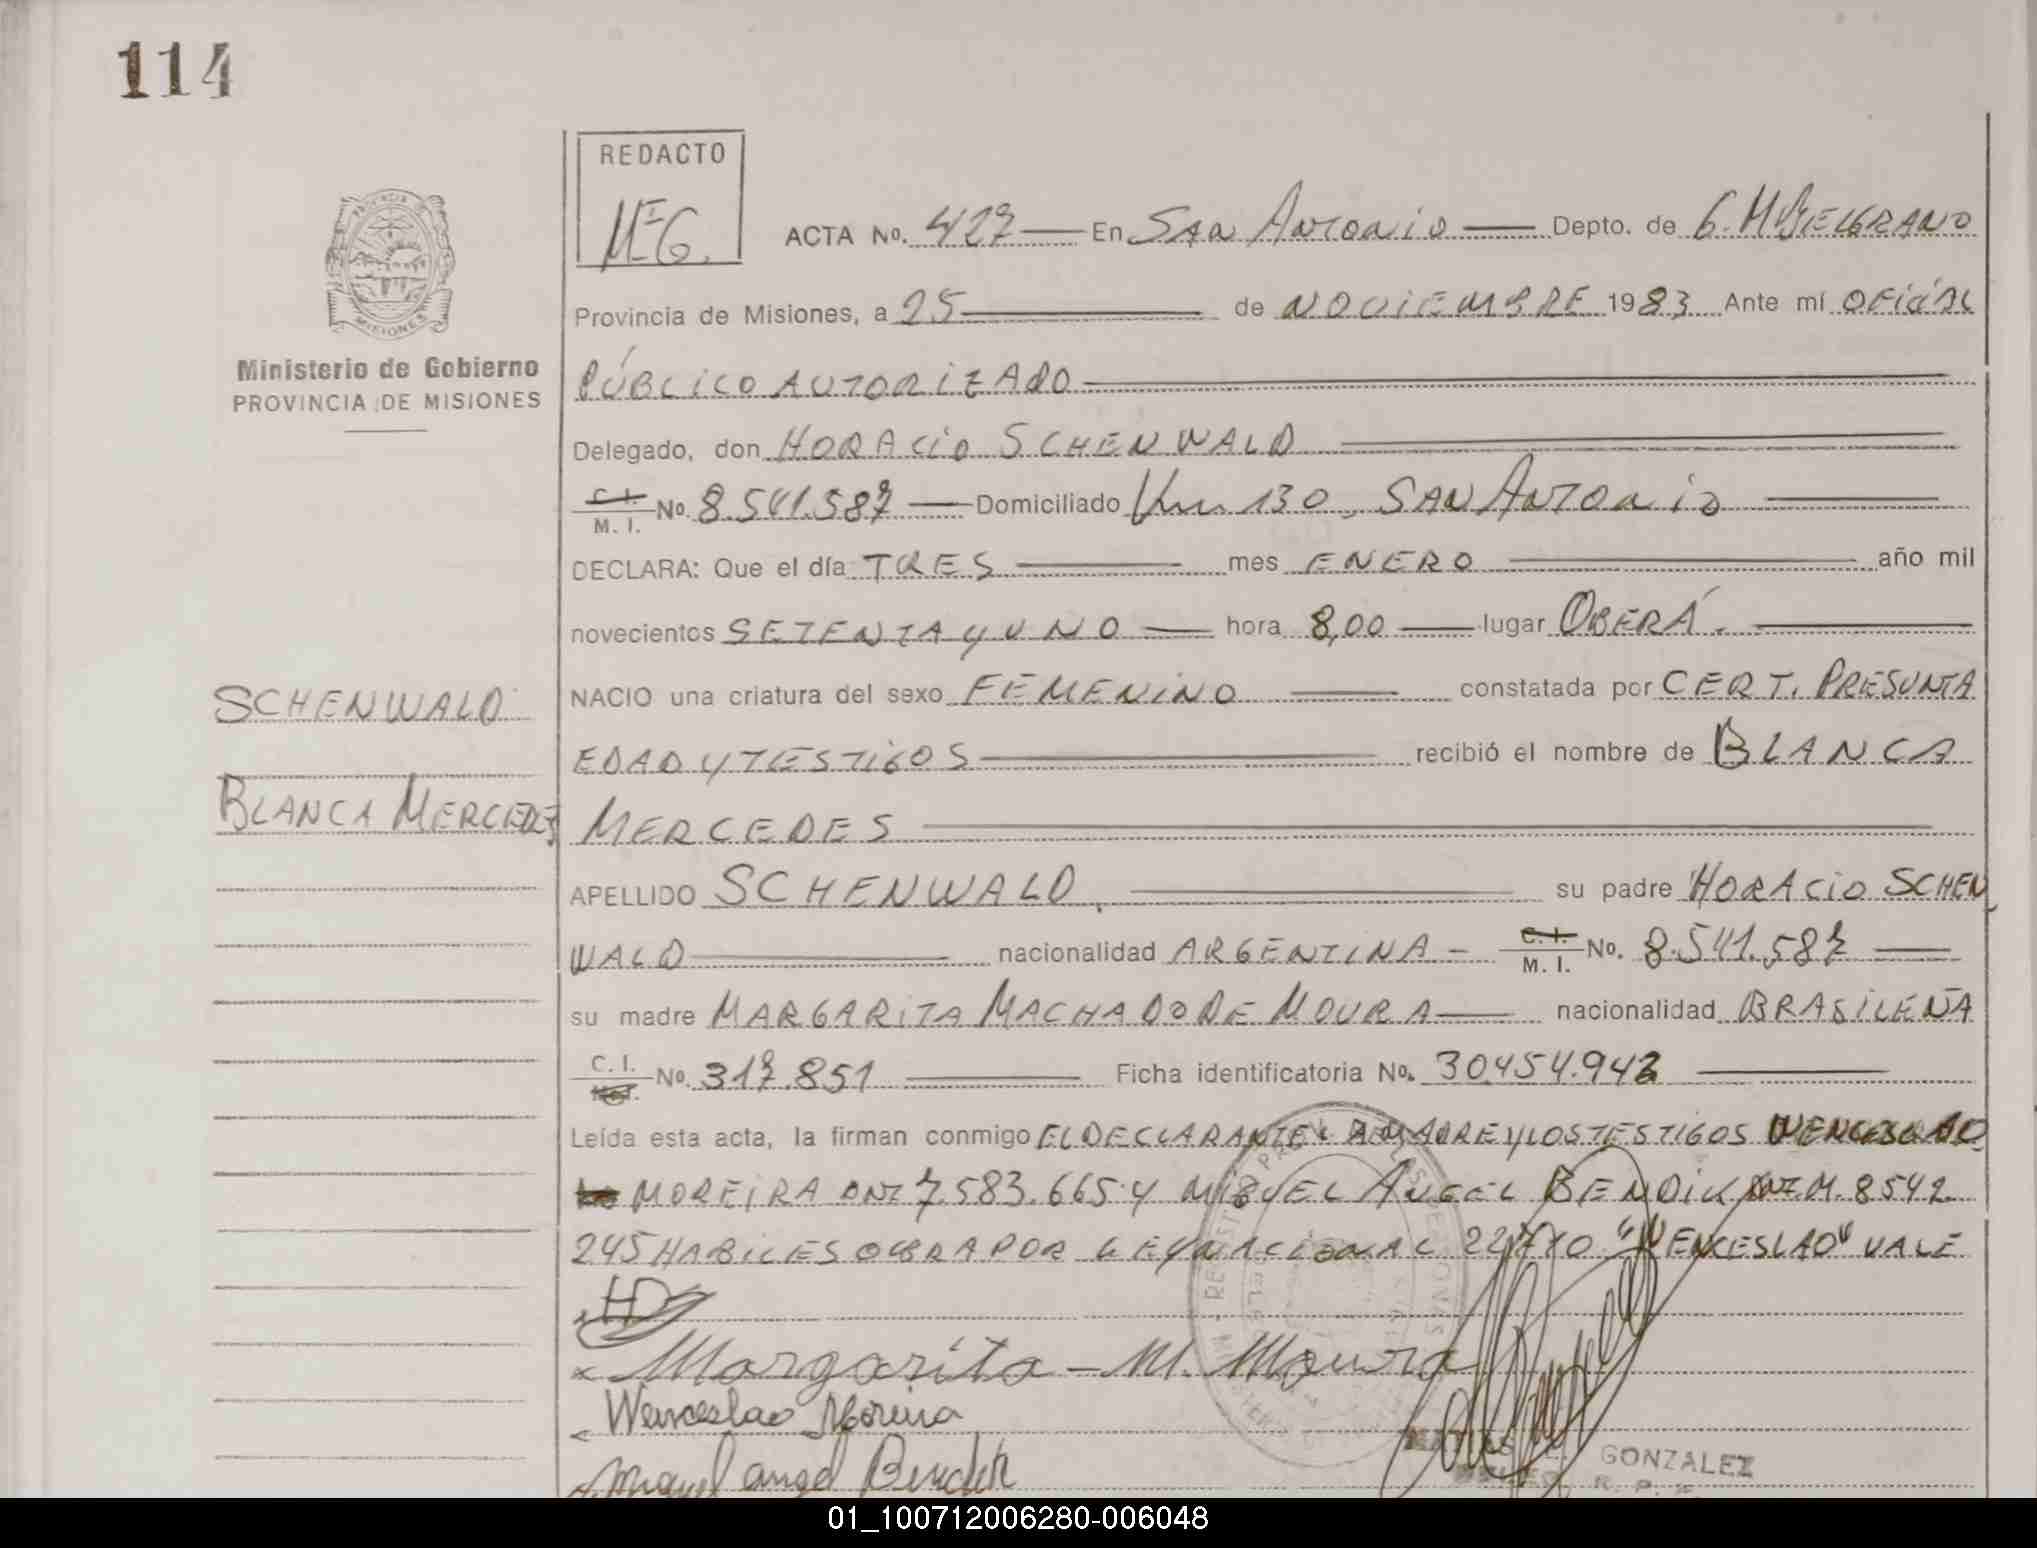 114
REDACTO
MEG.
PROVINCIA
MISIONES
Ministerio de Gobierno
PROVINCIA DE MISIONES
ACTA No. 427 En SAN ANTONIO Depto. de G. M BELGRANO
Provincia de Misiones, a 25 de NOVIEMBRE 1983 Ante mí OFICIAL
PÚBLICO AUTORIZADO
Delegado, don HORACIO SCHENWALD
C. I. M. I. No. 8.541.587 Domiciliado Km 130, SAN ANTONIO
DECLARA: Que el día TRES mes ENERO año mil
novecientos SETENTA Y UNO hora 8,00 lugar OBERÁ.
SCHENWALD
NACIO una criatura del sexo FEMENINO constatada por CERT. PRESUNTA
EDAD Y TESTIGOS recibió el nombre de BLANCA
BLANCA MERCEDES
MERCEDES
APELLIDO SCHENWALD, su padre HORACIO SCHEN
WALD nacionalidad ARGENTINA - C. I. M. I. No. 8.541.587
su madre MARGARITA MACHADO DE MOURA nacionalidad BRASILEÑA
C. I. No. 317.851 Ficha identificatoria No. 30.454.942
Leída esta acta, la firman conmigo EL DECLARANTE LA MADRE Y LOS TESTIGOS WENCESLAO
MOREIRA DNI 7.583.665 Y MIGUEL ANGEL BENDIK DNI M. 8542
245 HABILES OBRA POR LEY NACIONAL "WENCESLAO" VALE
Margarita - M. Moura
Wenceslao Moreira
Miguel angel Bendik
GONZALEZ
01_100712006280-006048